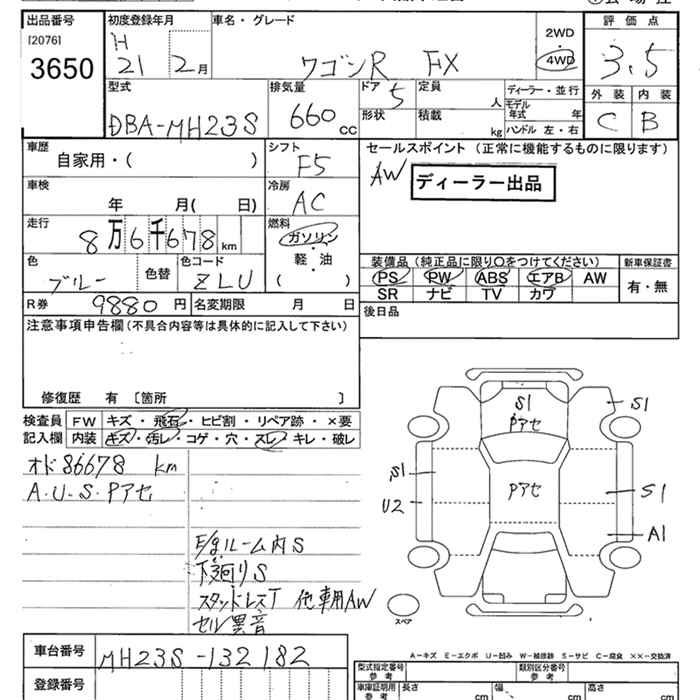 出品番号
[2076]
3650
初度登録年月
H
21 2月
車名・グレード
ワゴンR FX
2WD
・
4WD
評価点
3.5
外装 内装
C B
型式
DBA-MH23S
排気量
660cc
ドア
5
形状
定員
人
積載
kg
ディーラー・並行
モデル
年式 年
ハンドル 左・右
車歴
自家用・( )
シフト
F5
セールスポイント (正常に機能するものに限ります)
AW ディーラー出品
車検
年 月( 日)
冷房
AC
走行
8万6千678km
燃料
ガソリン
・
軽・油
( )
色
ブルー
色替
色コード
ZLU
装備品(純正品に限り○をつけてください)
PS PW ABS エアB AW
SR ナビ TV カワ
新車保証書
有・無
R券 9880円
名変期限 月 日
後日品
注意事項申告欄(不具合内容等は具体的に記入して下さい)
修復歴 有 〔箇所 〕
検査員
記入欄
FW キズ・飛石・ヒビ割・リペア跡・×要
内装 キズ・汚レ・コゲ・穴・スレ・キレ・破レ
オド86678 km
A.U.S.Pアセ
E/gルーム内S
下廻りS
スタッドレスT 他車用AW
セル異音
S1
Pアセ
S1
S1
Pアセ
S1
U2
A1
スペア
A-キズ E-エクボ U-凹み W-補修跡 S-サビ C-腐食 ××-交換済
車台番号
MH23S-132182
登録番号
型式指定番号
参考
類別区分番号
参考
車庫証明用
参考
長さ
cm
幅
cm
高さ
cm